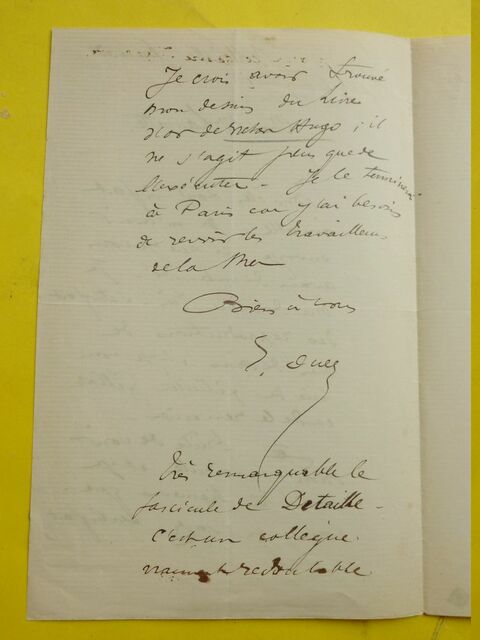 Je crois avoir trouvé
mon dessin du Livre
d'or de Victor Hugo ; il
ne s'agit plus que de
l'exécuter - Je le terminerai
à Paris car j'ai besoin
de revoir les travailleurs
de la Mer
Bien à vous
Duez
très remarquable le
fascicule de Detaille -
c'est un collègue
vraiment redoutable.